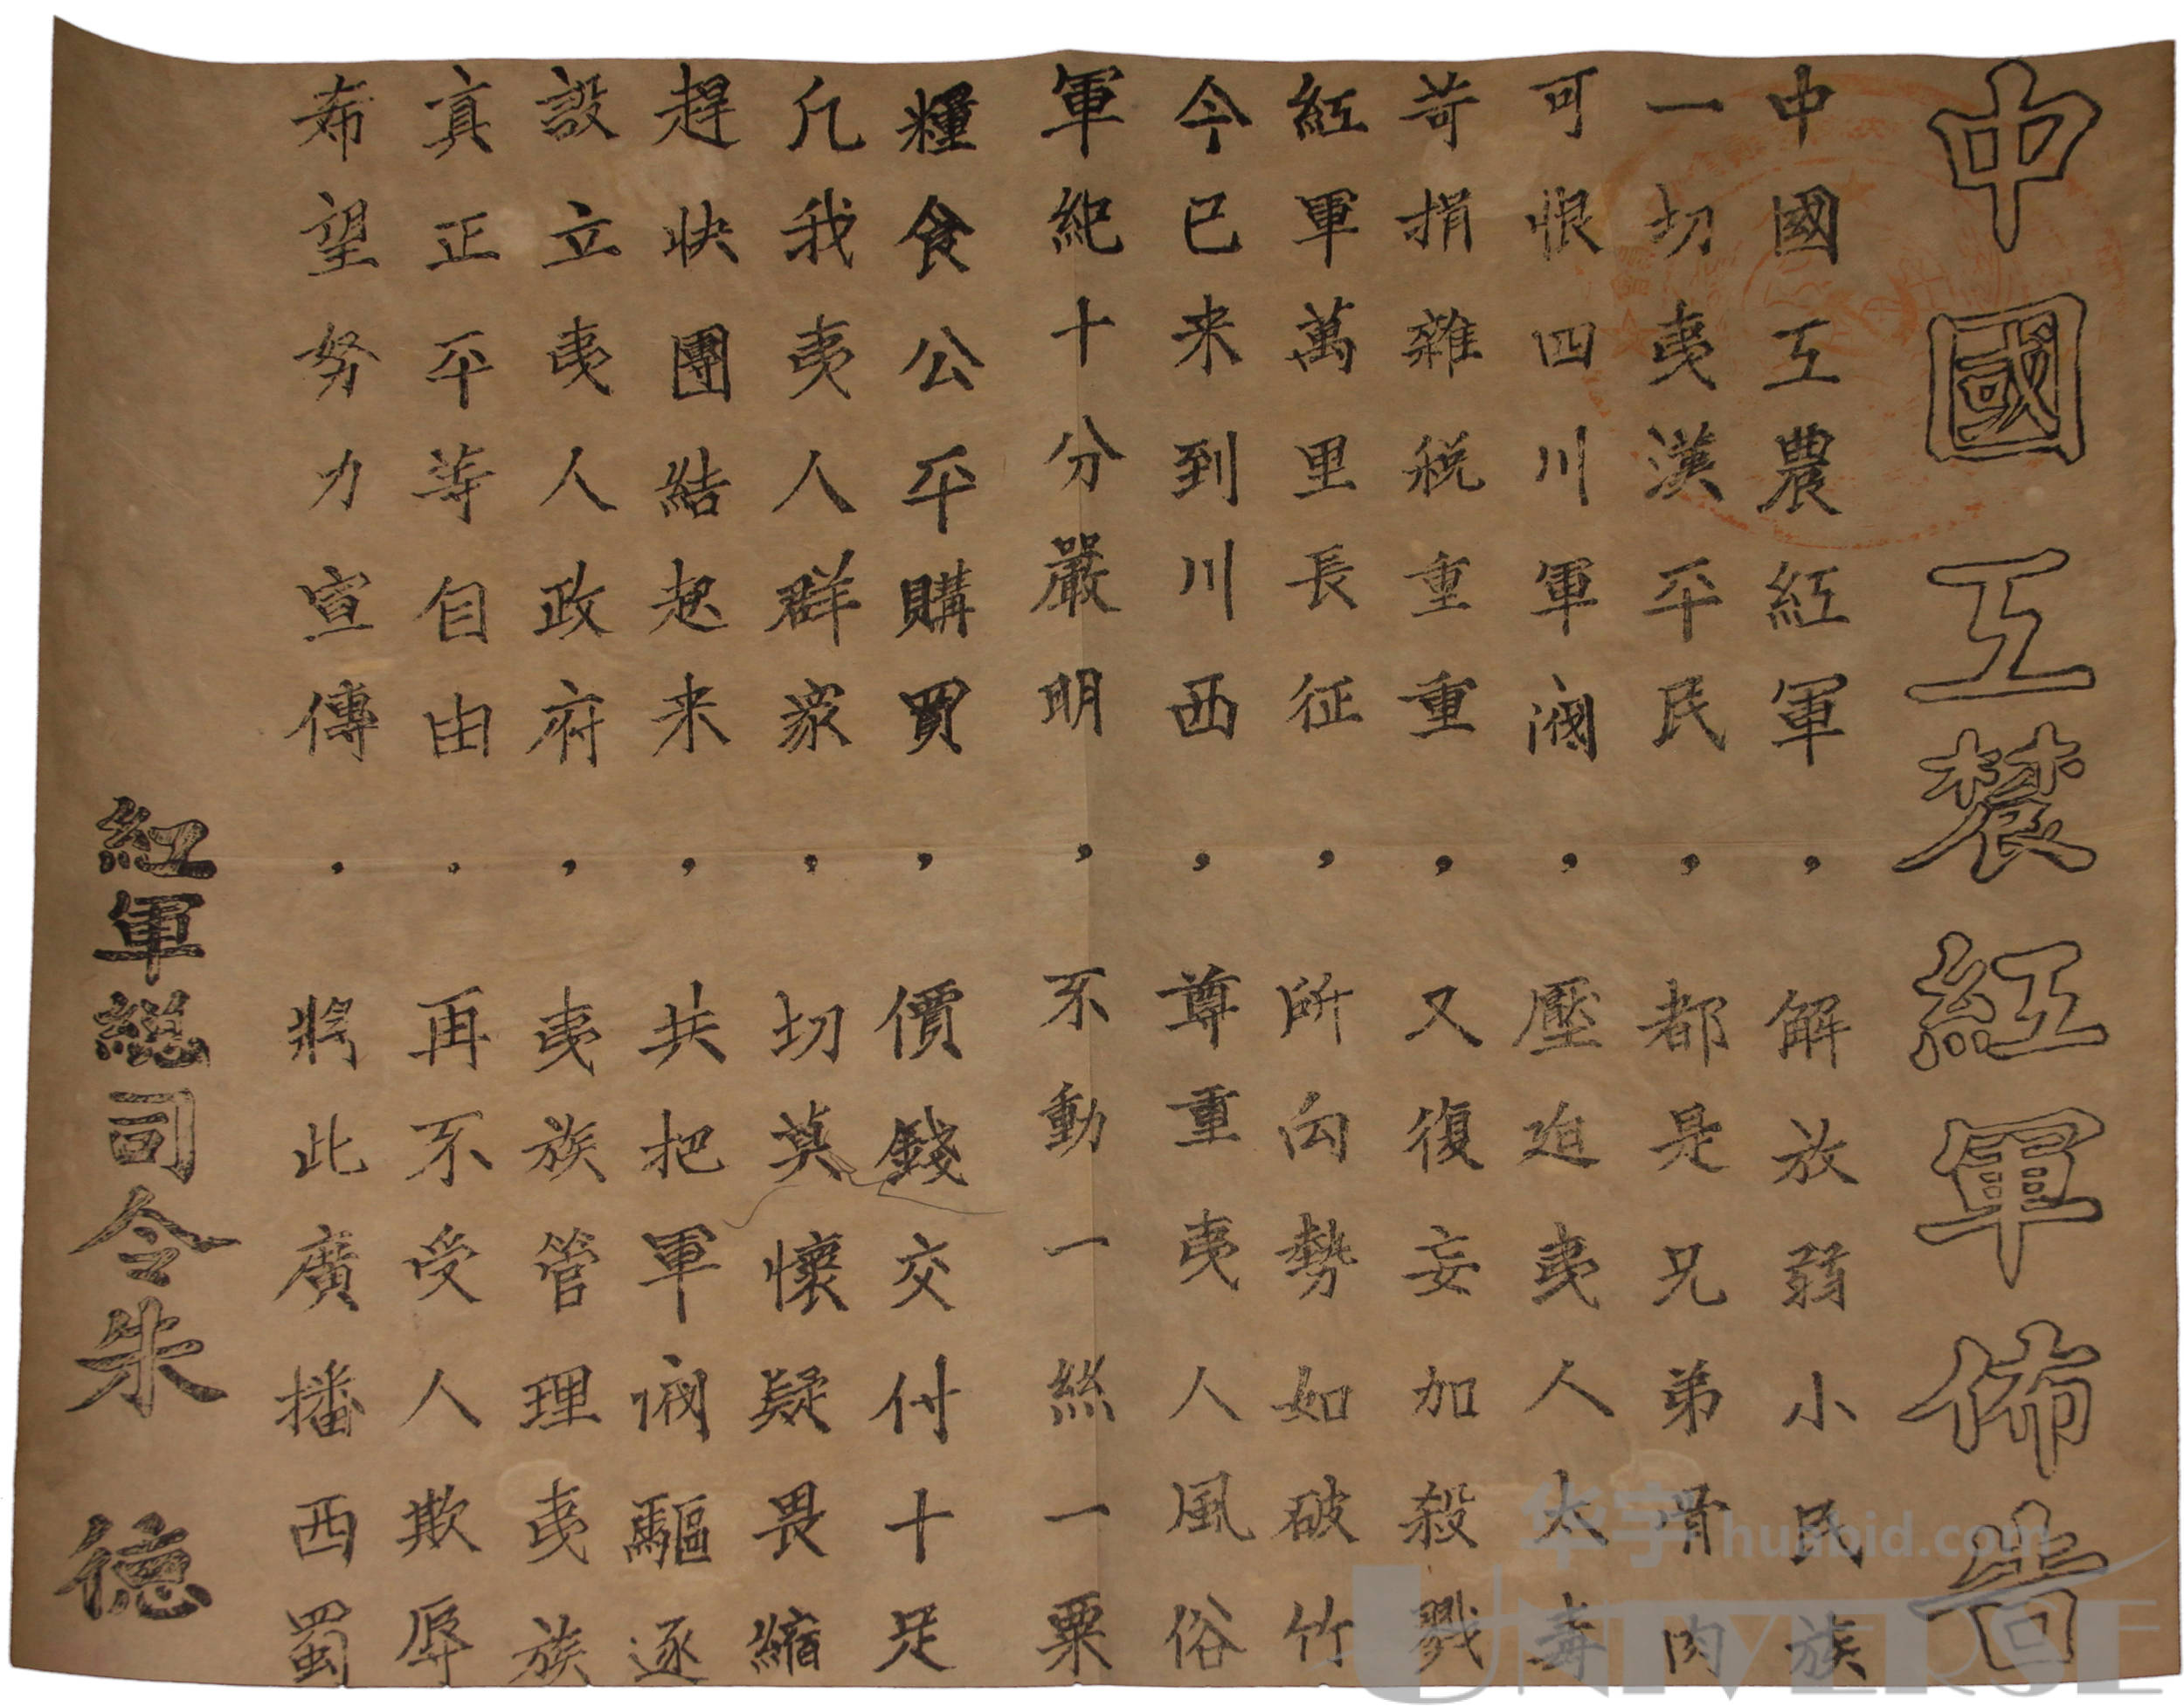 中國工農紅軍佈告
中國工農紅軍，解放弱小民族
一切夷漢平民，都是兄弟骨肉
可恨四川軍閥，壓迫夷人太毒
苛捐雜稅重重，又復妄加殺戮
紅軍萬里長征，所向勢如破竹
今已来到川西，尊重夷人風俗
軍紀十分嚴明，不動一絲一粟
糧食公平購買，價錢交付十足
凡我夷人群眾，切莫懷疑畏縮
趕快團結起来，共把軍閥驅逐
設立夷人政府，夷族管理夷族
真正平等自由。再不受人欺辱
希望努力宣傳，將此廣播西蜀
紅軍總司令朱德
华宇 huabid.com
UNIVERSE